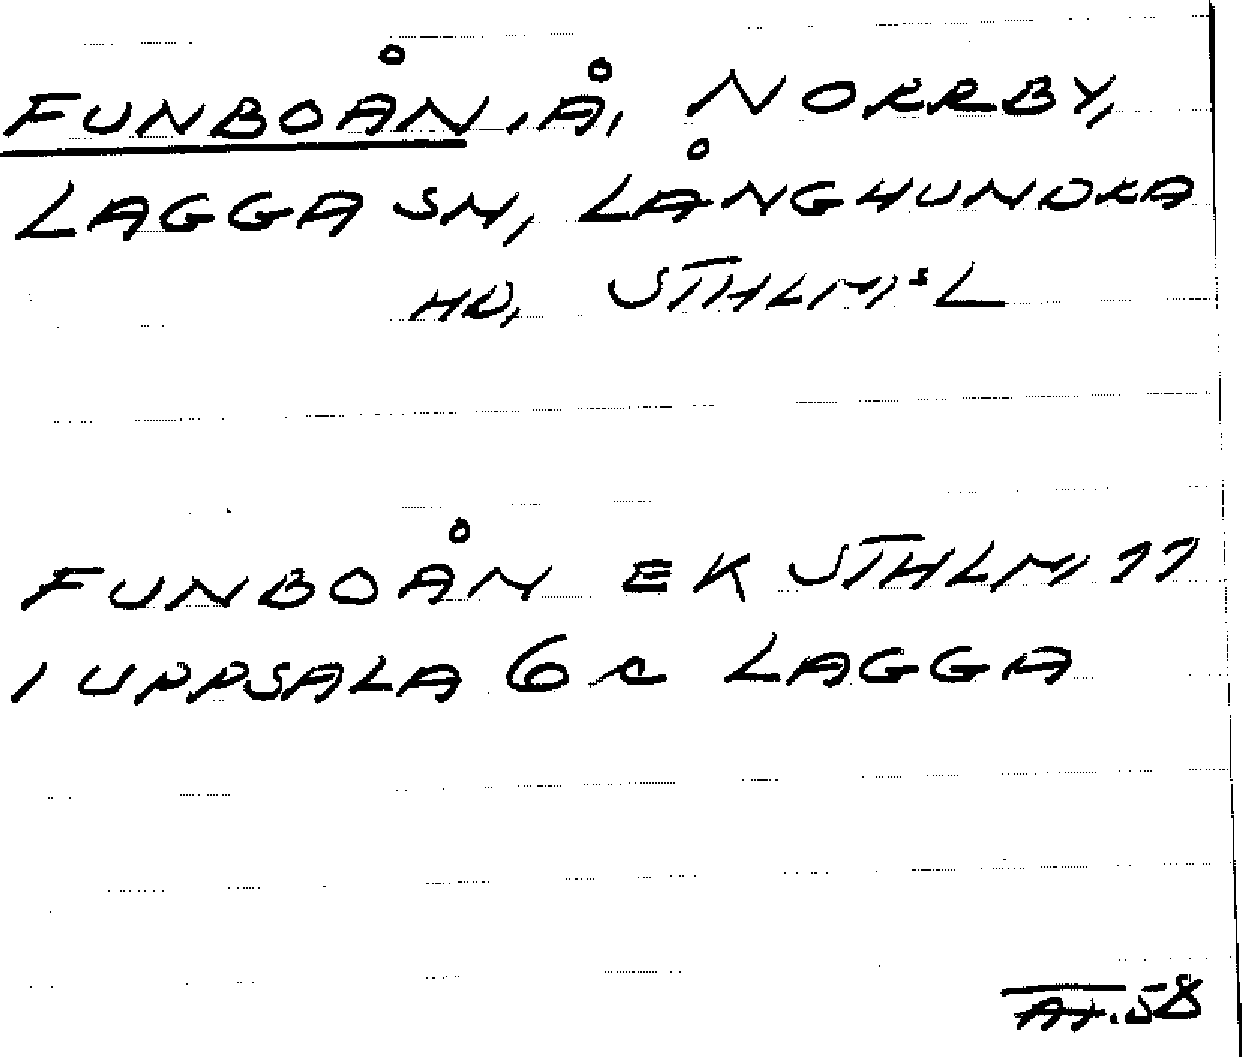 FUNBOÅN, Å, NORRBY,
LAGGA SN, LÅNGHUNDRA
HD, STHLM:S L
FUNBOÅN EK STHLM 77
I UPPSALA 6 c LAGGA
58